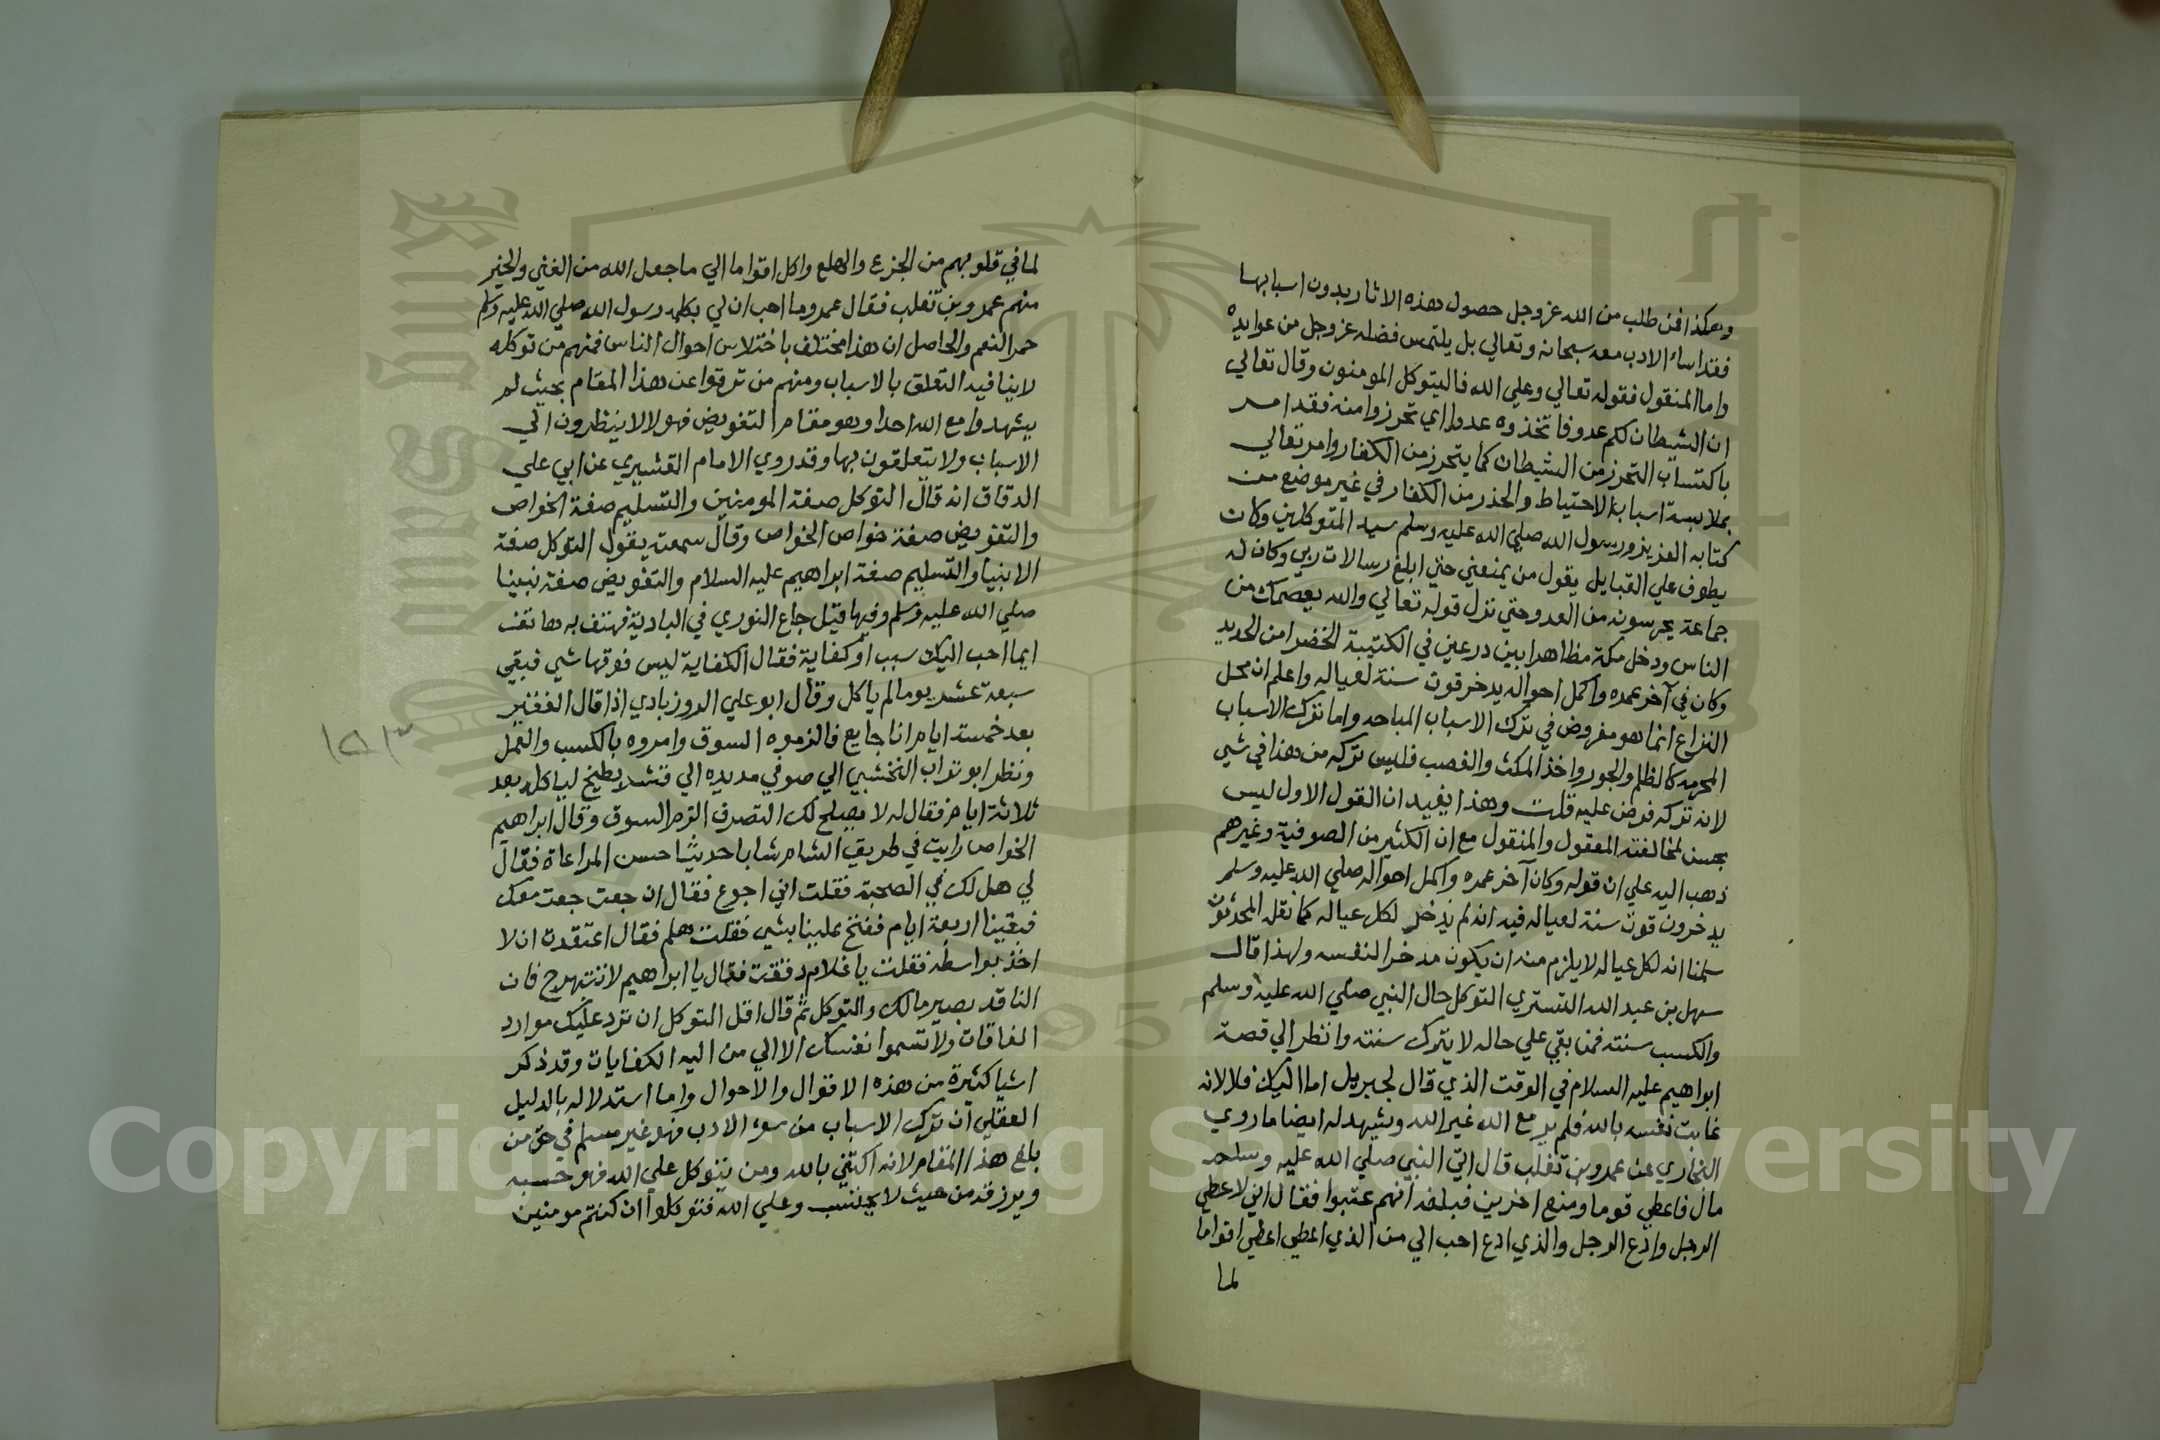 وهكذا فمن طلب من الله عز وجل حصول هذه الاثار بدون اسبابها
فقد اساء الادب معه سبحانه وتعالي بل يلتمس فضله عز وجل من عوايده
واما المنقول فقوله تعالي وعلي الله فاليتوكل المومنون وقال تعالي
ان الشيطان لكم عدو فاتخذوه عدوا اي تحرزوا منه فقد امر
باكتساب التحرز من الشيطان كما يتحرز من الكفار وامر تعالي
بملابسة اسباب الاحتياط والحذر من الكفار في غير موضع من
كتابه العزيز ورسول الله صلي الله عليه وسلم سيد المتوكلين وكان
يطوف علي القبايل يقول من يمنعني حتي ابلغ رسالات ربي وكان له
جماعة يحرسونه من العدو حتي نزل قوله تعالي والله يعصمك من
الناس ودخل مكة مظاهرا بين درعين في الكتيبة الخضرا من الحديد
وكان في آخر عمره واكمل احواله يدخر قوت سنة لعياله واعلم ان محل
النزاع انما هو مفروض في ترك الاسباب المباحه واما ترك الاسباب
المحرمه كالظلم والجور واخذ المكث والغصب فليس تركه من هذا في شي
لانه تركه فرض عليه قلت وهذا يفيد ان القول الاول ليس
بحسن لمخالفته المعقول والمنقول مع ان الكثير من الصوفية وغيرهم
ذهب اليه علي ان قوله وكان آخر عمره واكمل احواله صلي الله عليه وسلم
يدخرون قوت سنة لعياله فيه انه لم يدخر لكل عياله كما نقله المحدثون
سلمنا انه لكل عياله لا يلزم منه ان يكون مدخرا لنفسه ولهذا قال
سهل بن عبد الله التستري التوكل حال النبي صلي الله عليه وسلم
والكسب سنته فمن بقي علي حاله لا يترك سنته وانظر الي قصة
ابراهيم عليه السلام في الوقت الذي قال لجبريل اما اليك فلا لانه
غابت نفسه بالله فلم ير مع الله غير الله ويشهد له ايضا ما روي
البخاري عن عمرو بن تغلب قال اتي النبي صلي الله عليه وسلم
مال فاعطي قوما ومنع اخرين فبلغه انهم عتبوا فقال اني لاعطي
الرجل وادع الرجل والذي ادع احب الي من الذي اعطي اعطي اقواما
لما
لما في قلوبهم من الجزع والهلع واكل اقواما الي ما جعل الله من الغني والخير
منهم عمرو بن تغلب فقال عمرو ما احب ان لي بكلمه رسول الله صلي الله عليه وسلم
حمر النعم والحاصل ان هذا مختلف باختلاس احوال الناس فمنهم من توكله
لا ينافيه التعلق بالاسباب ومنهم من ترقوا عن هذا المقام بحيث لم
يشهدوا مع الله احدا وهو مقام التفويض فهولا لا ينظرون الي
الاسباب ولا يتعلقون بها وقد روي الامام القشيري عن ابي علي
الدقاق انه قال التوكل صفة المومنين والتسليم صفة الخواص
والتفويض صفة خواص الخواص وقال سمعته يقول التوكل صفة
الانبيا والتسليم صفة ابراهيم عليه السلام والتفويض صفة نبينا
صلي الله عليه وسلم وفيها قيل جاع النوري في البادية فهتف به هاتف
ايما احب اليك سبب او كفاية فقال الكفاية ليس فوقها شي فبقي
سبعة عشر يوما لم ياكل وقال ابو علي الروزبادي اذا قال الفقير
بعد خمسة ايام انا جايع فالزموه السوق وامروه بالكسب والعمل
ونظر ابو تراب النخشبي الي صوفي مد يده الي قشر بطيخ لياكله بعد
ثلاثة ايام فقال له لا يصلح لك التصرف الزم السوق وقال ابراهيم
الخواص رايت في طريق الشام شابا حديثا حسن المراعاة فقال
لي هل لك في الصحبة فقلت اني اجوع فقال ان جعت جعت معك
فبقينا اربعة ايام ففتح علينا بشي فقلت هلم فقال اعتقدت ان لا
اخذ بواسطه فقلت يا غلام دققت فقال يا ابراهيم لا تتبهرج فان
الناقد بصير مالك والتوكل ثم قال اقل التوكل ان ترد عليك موارد
الفاقات ولا تسموا نفسك الا الي من اليه الكفايات وقد ذكر
اشيا كثيرة من هذه الاقوال والاحوال واما استدلاله بالدليل
العقلي ان ترك الاسباب من سوء الادب فهو غير مسلم في حق من
بلغ هذا المقام لانه اكتفي بالله ومن يتوكل علي الله فهو حسبه
ويرزقه من حيث لا يحتسب وعلي الله فتوكلوا ان كنتم مومنين
١٥٣
Copyright © King Saud University
1957